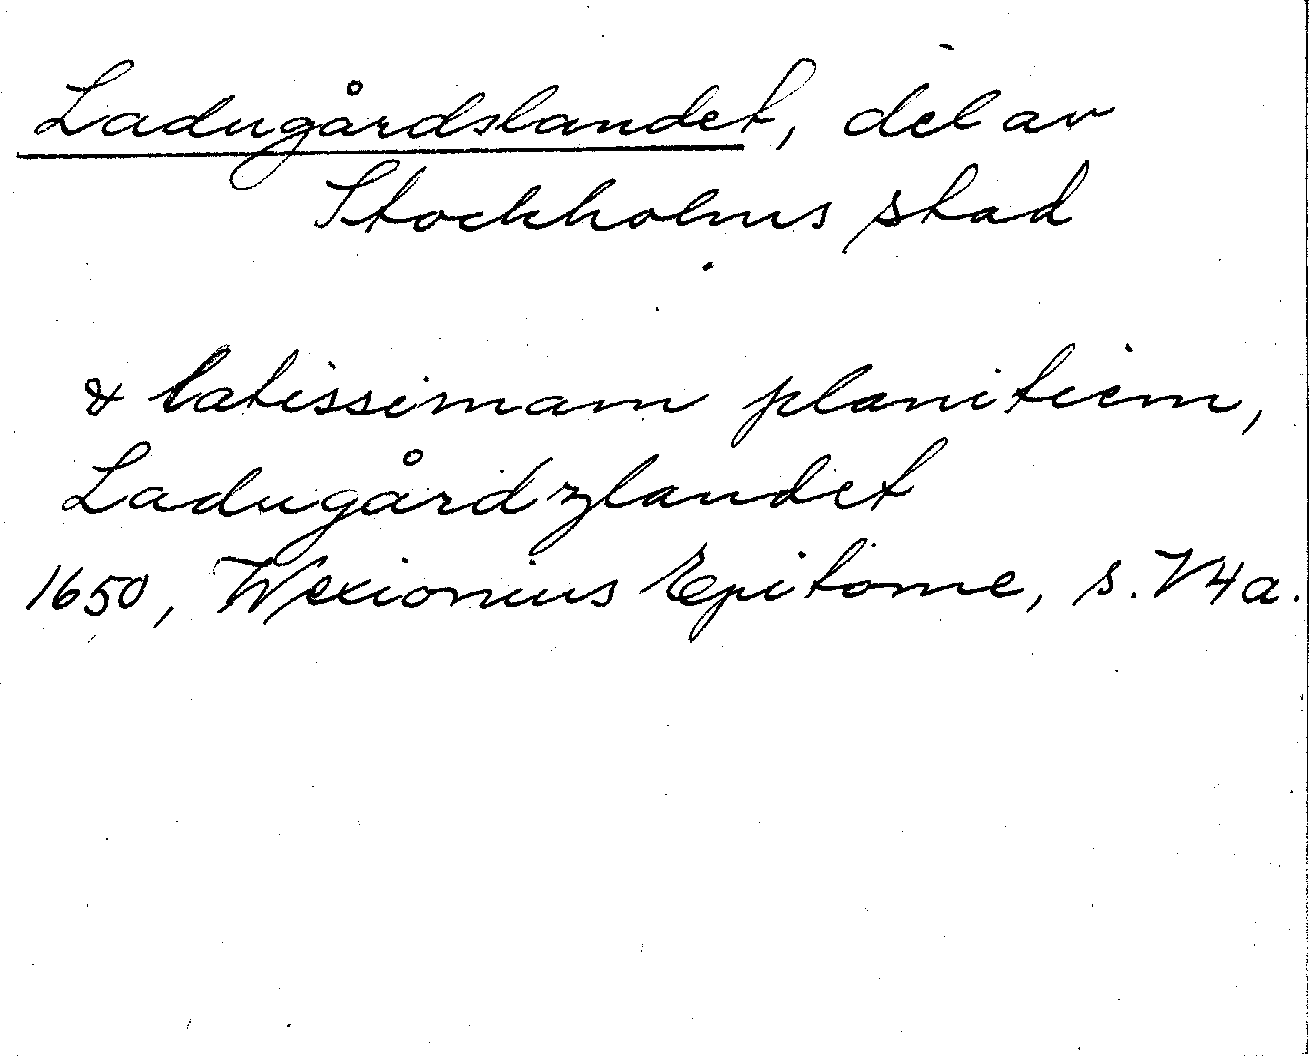 Ladugårdslandet, del av
Stockholms stad
& latissimam planitiem,
Ladugårdzlandet
1650, Wexionius Epitome, s. V4a.